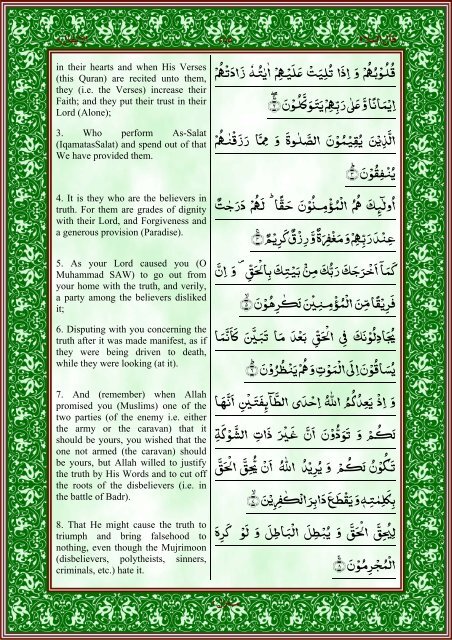 in their hearts and when His Verses
(this Quran) are recited unto them,
they (i.e. the Verses) increase their
Faith; and they put their trust in their
Lord (Alone);
3. Who perform As-Salat
(IqamatasSalat) and spend out of that
We have provided them.
4. It is they who are the believers in
truth. For them are grades of dignity
with their Lord, and Forgiveness and
a generous provision (Paradise).
5. As your Lord caused you (O
Muhammad SAW) to go out from
your home with the truth, and verily,
a party among the believers disliked
it;
6. Disputing with you concerning the
truth after it was made manifest, as if
they were being driven to death,
while they were looking (at it).
7. And (remember) when Allah
promised you (Muslims) one of the
two parties (of the enemy i.e. either
the army or the caravan) that it
should be yours, you wished that the
one not armed (the caravan) should
be yours, but Allah willed to justify
the truth by His Words and to cut off
the roots of the disbelievers (i.e. in
the battle of Badr).
8. That He might cause the truth to
triumph and bring falsehood to
nothing, even though the Mujrimoon
(disbelievers, polytheists, sinners,
criminals, etc.) hate it.
قُلُوْبُهُمْ وَ اِذَا تُلِيَتْ عَلَيْهِمْ اٰيٰتُهٗ زَادَتْهُمْ
اِيْمَانًا وَّ عَلٰى رَبِّهِمْ يَتَوَكَّلُوْنَ
الَّذِيْنَ يُقِيْمُوْنَ الصَّلٰوةَ وَ مِمَّا رَزَقْنٰهُمْ
يُنْفِقُوْنَ
اُولٰٓىِٕكَ هُمُ الْمُؤْمِنُوْنَ حَقًّا ؕ لَهُمْ دَرَجٰتٌ
عِنْدَ رَبِّهِمْ وَ مَغْفِرَةٌ وَّ رِزْقٌ كَرِيْمٌ
كَمَاۤ اَخْرَجَكَ رَبُّكَ مِنْۢ بَيْتِكَ بِالْحَقِّ ۪ وَ اِنَّ
فَرِيْقًا مِّنَ الْمُؤْمِنِيْنَ لَكٰرِهُوْنَ
يُجَادِلُوْنَكَ فِى الْحَقِّ بَعْدَ مَا تَبَيَّنَ كَاَنَّمَا
يُسَاقُوْنَ اِلَى الْمَوْتِ وَ هُمْ يَنْظُرُوْنَ
وَ اِذْ يَعِدُكُمُ اللّٰهُ اِحْدَى الطَّآىِٕفَتَيْنِ اَنَّهَا
لَكُمْ وَ تَوَدُّوْنَ اَنَّ غَيْرَ ذَاتِ الشَّوْكَةِ
تَكُوْنُ لَكُمْ وَ يُرِيْدُ اللّٰهُ اَنْ يُّحِقَّ الْحَقَّ
بِكَلِمٰتِهٖ وَ يَقْطَعَ دَابِرَ الْكٰفِرِيْنَ
لِيُحِقَّ الْحَقَّ وَ يُبْطِلَ الْبَاطِلَ وَ لَوْ كَرِهَ
الْمُجْرِمُوْنَ